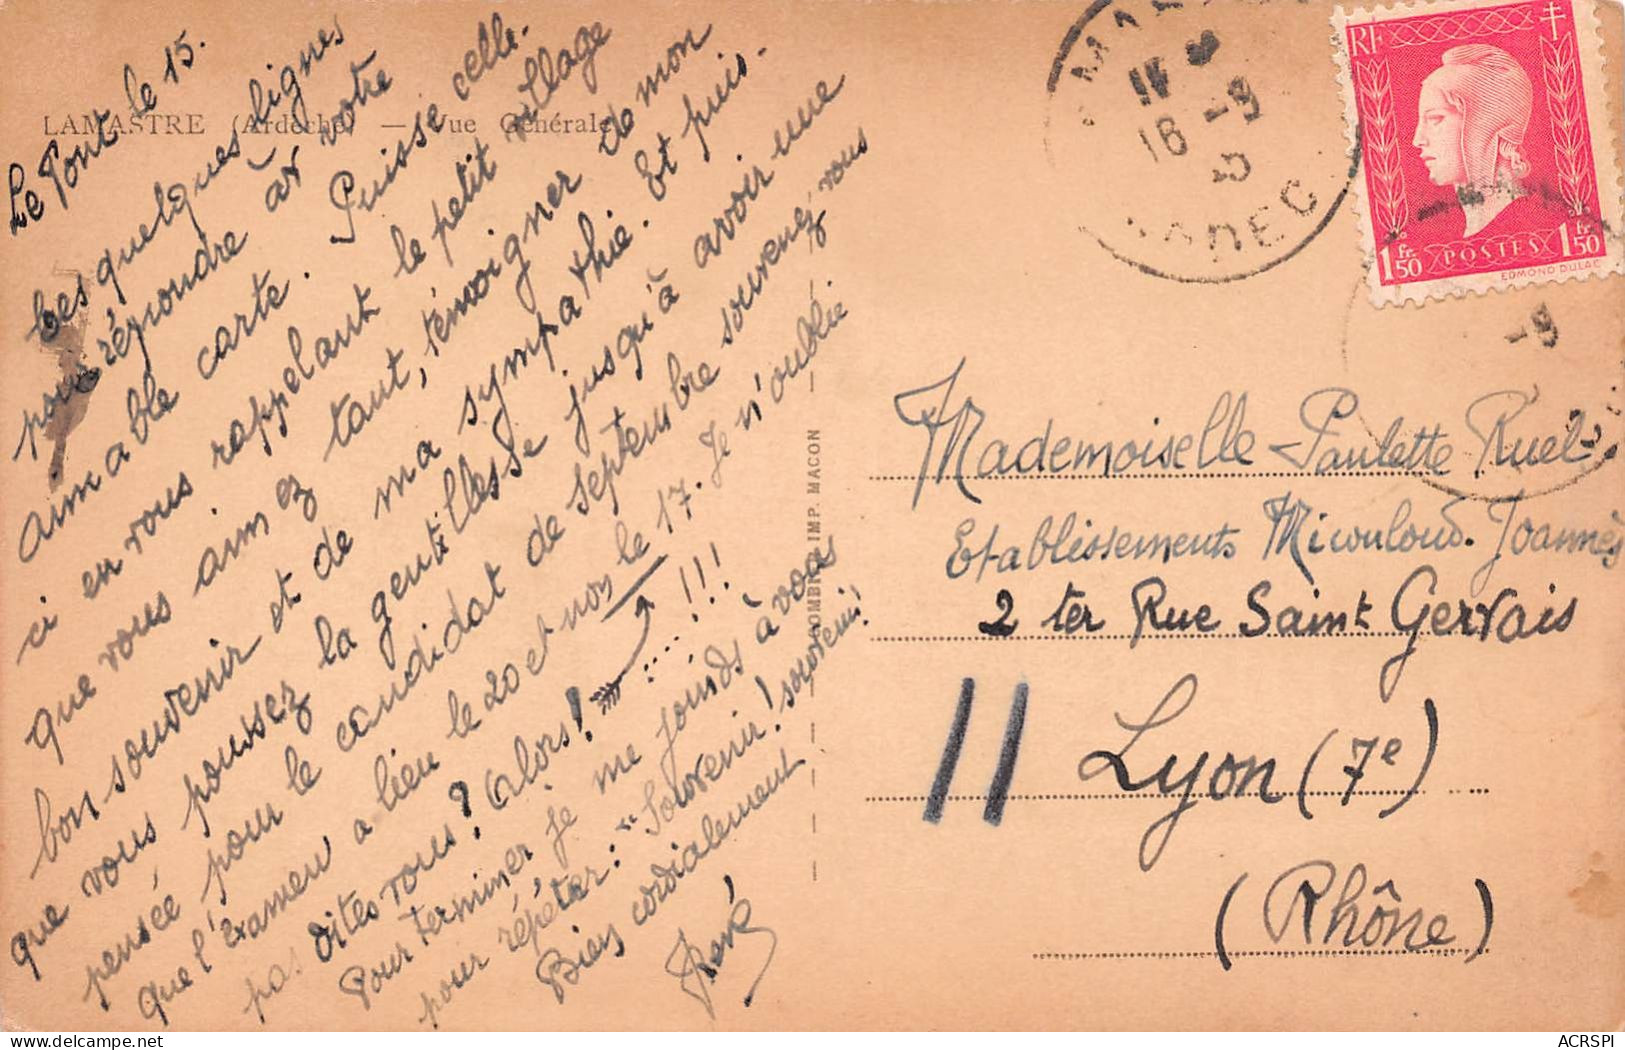 LAMASTRE (Ardèche) — Vue Générale
Le Pont le 15.
Ces quelques lignes
pour répondre à votre
aimable carte. Puisse celle-
ci en vous rappelant le petit village
que vous aimez tant, témoigner de mon
bon souvenir et de ma sympathie. Et puis.
que vous poussez la gentillesse jusqu'à avoir une
pensée pour le candidat de Septembre souvenez vous
que l'examen a lieu le 20 et non le 17. Je n'oublie
pas dites vous? Alors! ....!!!
Pour terminer je me joinds à vous
pour répéter: "Souvenir! souvenir!
Bien cordialement
René
COMBIER IMP. MACON
RF
1fr.50 POSTES 1fr.50
EDMOND DULAC
16 -9
ARDECHE
-9
Mademoiselle Paulette Ruel
Etablissements Micouloud-Joannès
2 ter Rue Saint Gervais
11 Lyon (7e)
(Rhône)
ACRSPI